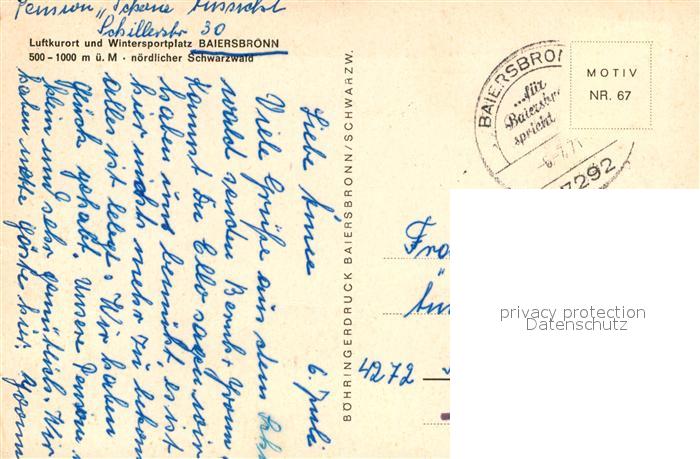 Pension "Schöne Aussicht
Schillerstr 30
Luftkurort und Wintersportplatz BAIERSBRONN
500–1000 m ü. M · nördlicher Schwarzwald
Liebe 6. Juli
Viele Grüße aus dem
wald senden Bernh. Yvonn
kannst Du sagen wir
haben uns bemüht, es ist
hier nichts mehr zu bekom
alles ist belegt. Wir haben
Glück gehabt. Unsere Pension
klein und sehr gemütlich. Wir
haben nette Gäste hier. Yvonn
BÖHRINGERDRUCK BAIERSBRONN/SCHWARZW.
BAIERSBRON
...für
Baiersbr
spricht
-6.-7.71
7292
MOTIV
NR. 67
Fra
4272
privacy protection
Datenschutz